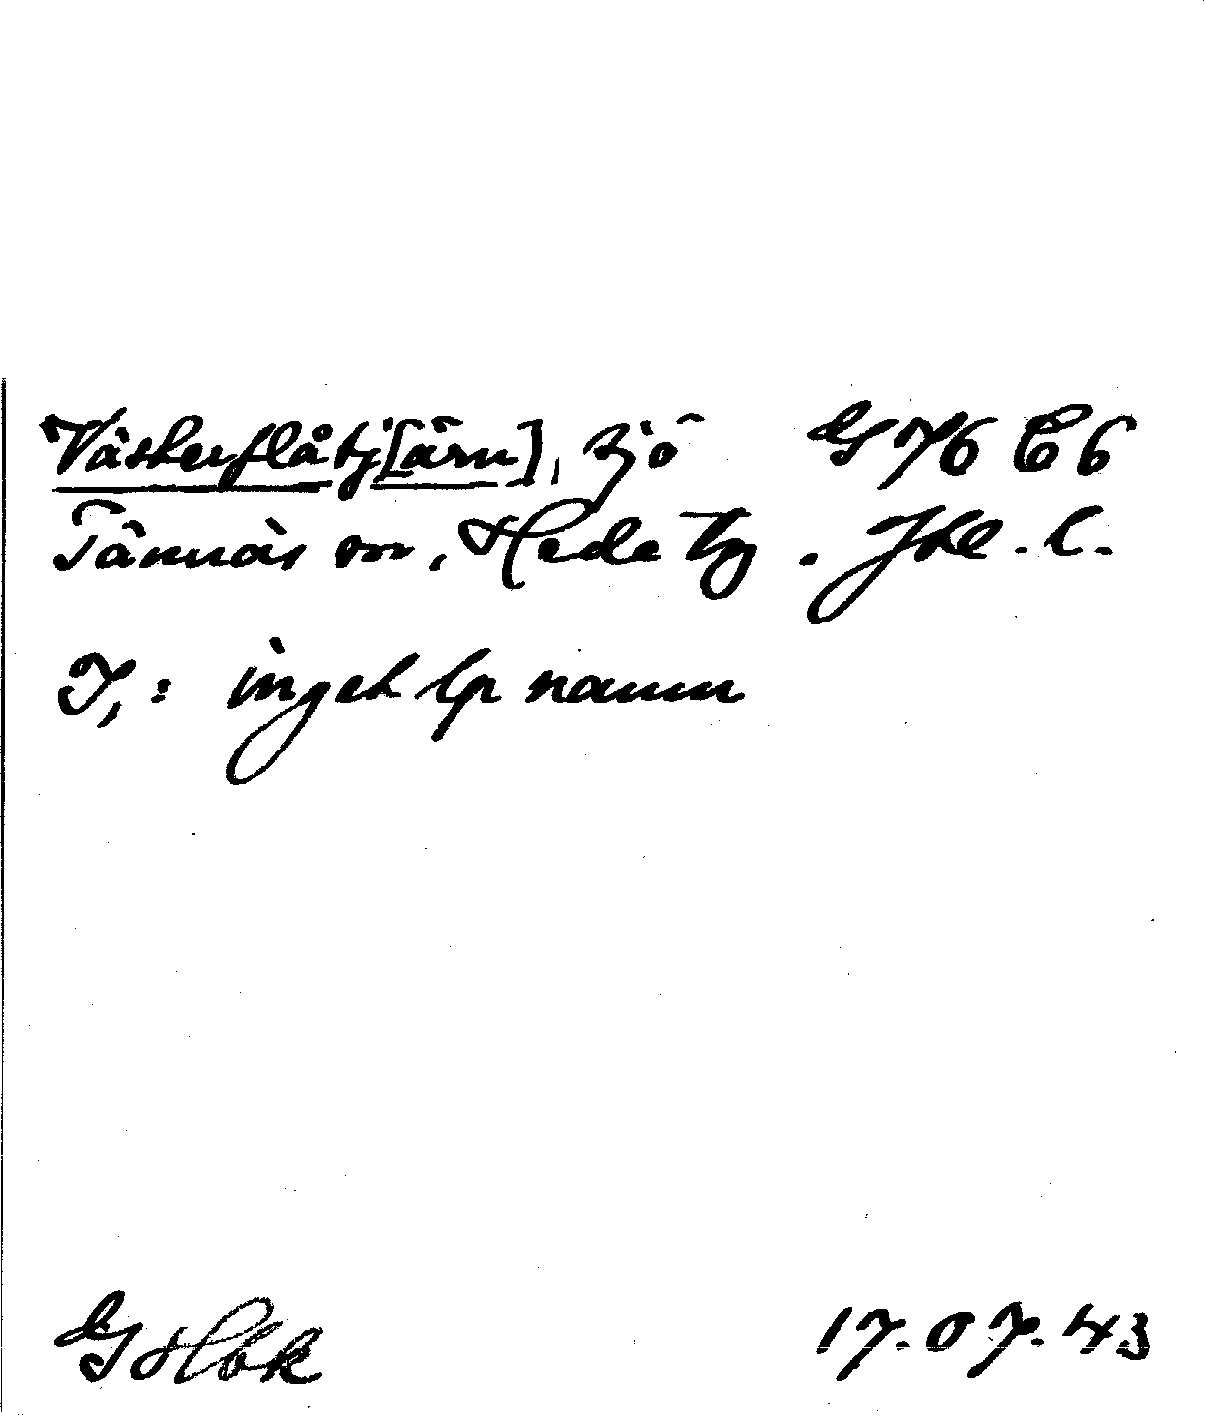 Västerflåtj[ärn], sjö G 76 C 6
Tännäs sn, Hede tg. Jtl. l.
J,: inget lp namn
GHbk 17.07.43